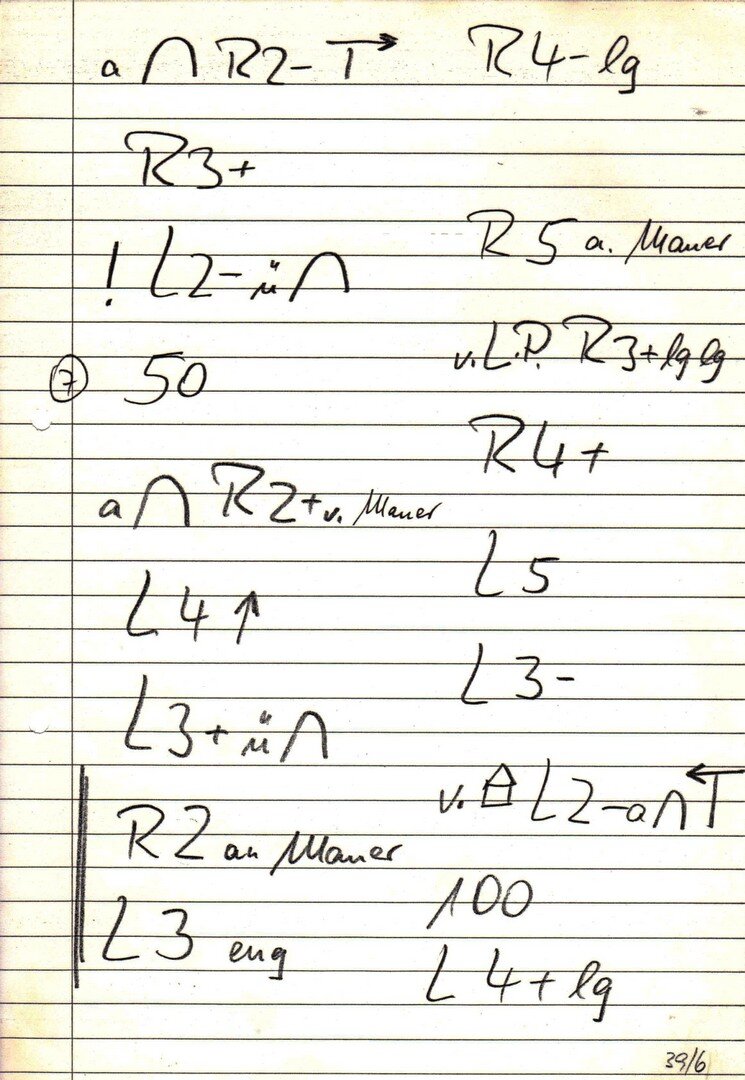 a ∩ R2- T→
R3+
! L2- ü ∩
⑦ 50
a ∩ R2+ v. Mauer
L4 ↑
L3+ ü ∩
R2 an Mauer
L3 eng
R4- lg
R5 a. Mauer
v. L.P. R3+ lg lg
R4+
L5
L3-
v. ⌂ L2- a ∩ ←T
100
L4+ lg
39/6